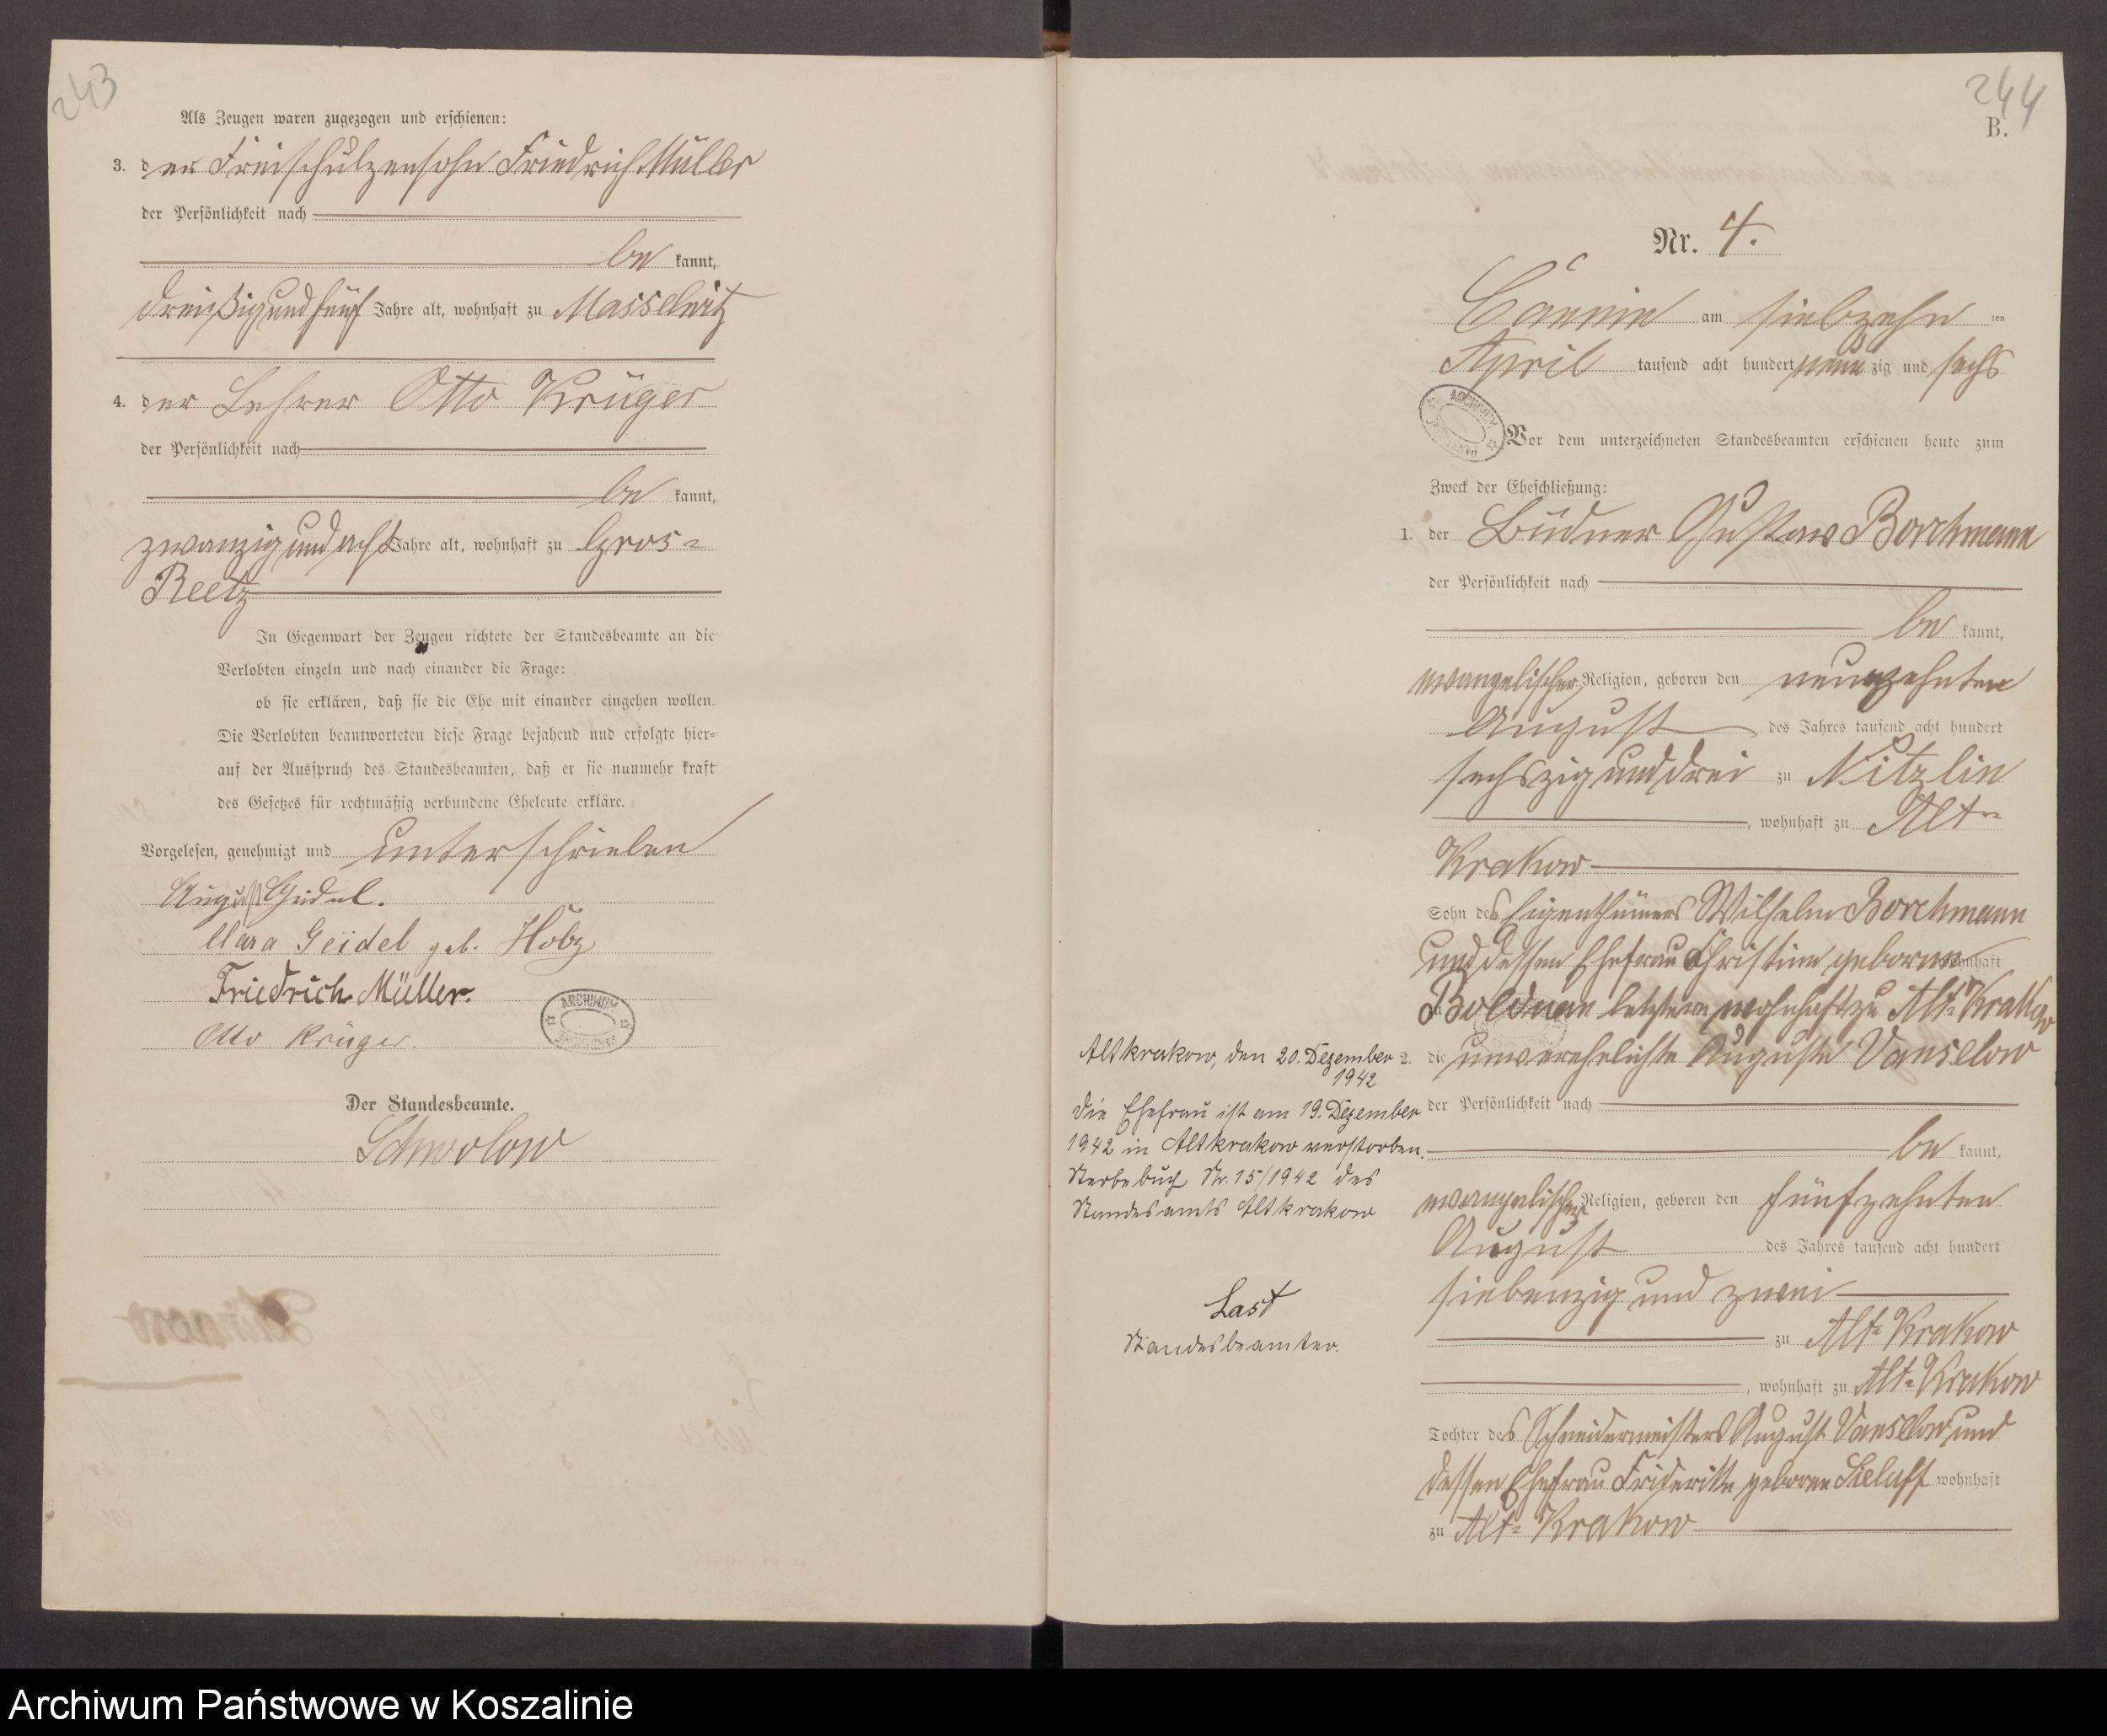 243
Als Zeugen waren zugezogen und erschienen:
3. der Freischulzensohn Friedrich Müller
der Persönlichkeit nach
be kannt,
dreißig und fünf Jahre alt, wohnhaft zu Masselwitz
4. der Lehrer Otto Krüger
der Persönlichkeit nach
be kannt,
zwanzig und acht Jahre alt, wohnhaft zu Gros-
Reetz
In Gegenwart der Zeugen richtete der Standesbeamte an die
Verlobten einzeln und nach einander die Frage:
ob sie erklären, daß sie die Ehe mit einander eingehen wollen.
Die Verlobten beantworteten diese Frage bejahend und erfolgte hier-
auf der Ausspruch des Standesbeamten, daß er sie nunmehr kraft
des Gesetzes für rechtmäßig verbundene Eheleute erkläre.
Vorgelesen, genehmigt und unterschrieben
August Geidel.
Clara Geidel geb. Holz
Friedrich Müller.
Otto Krüger.
ARCHIWUM
Der Standesbeamte.
Schwolow
244
B.
Nr. 4.
Cannin am siebzehn ten
April tausend acht hundert neun zig und sechs
ARCHIWUM
Vor dem unterzeichneten Standesbeamten erschienen heute zum
Zweck der Eheschließung:
1. der Büdner Gustav Borchmann
der Persönlichkeit nach
be kannt,
evangelischer Religion, geboren den neunzehnten
August des Jahres tausend acht hundert
sechszig und drei zu Nitzlin
, wohnhaft zu Alt-
Krakow
Sohn des Eigenthümers Wilhelm Borchmann
und dessen Ehefrau Christine geborene wohnhaft
zu Bolduan letztere wohnhaft zu Alt-Krakow
2. die unverehelichte Auguste Vanselow
der Persönlichkeit nach
be kannt,
evangelischer Religion, geboren den fünfzehnten
August des Jahres tausend acht hundert
siebenzig und zwei
zu Alt-Krakow
, wohnhaft zu Alt-Krakow
Tochter des Schneidermeisters August Vanselow und
dessen Ehefrau Friderike geborene Sielaff wohnhaft
zu Alt-Krakow
Altkrakow, den 20. Dezember
1942
Die Ehefrau ist am 19. Dezember
1942 in Altkrakow verstorben.
Sterbebuch Nr. 15/1942 des
Standesamts Altkrakow
Last
Standesbeamter.
Archiwum Państwowe w Koszalinie